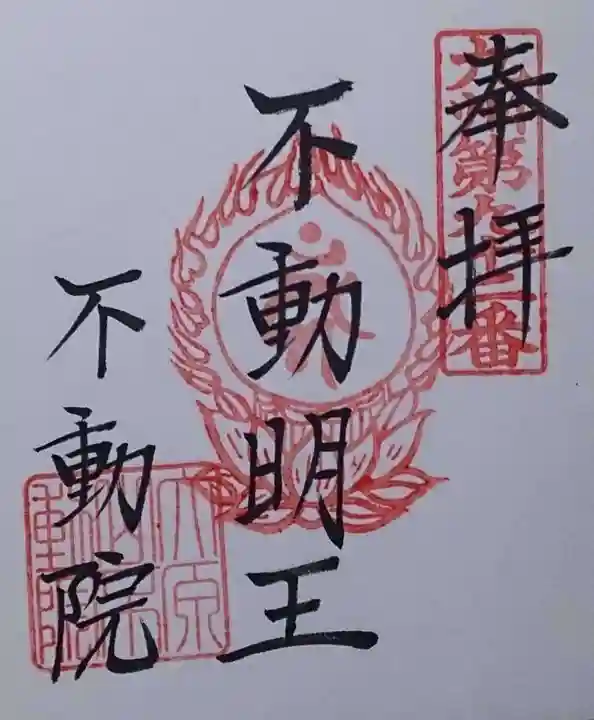 奉拝
不動明王
不動院